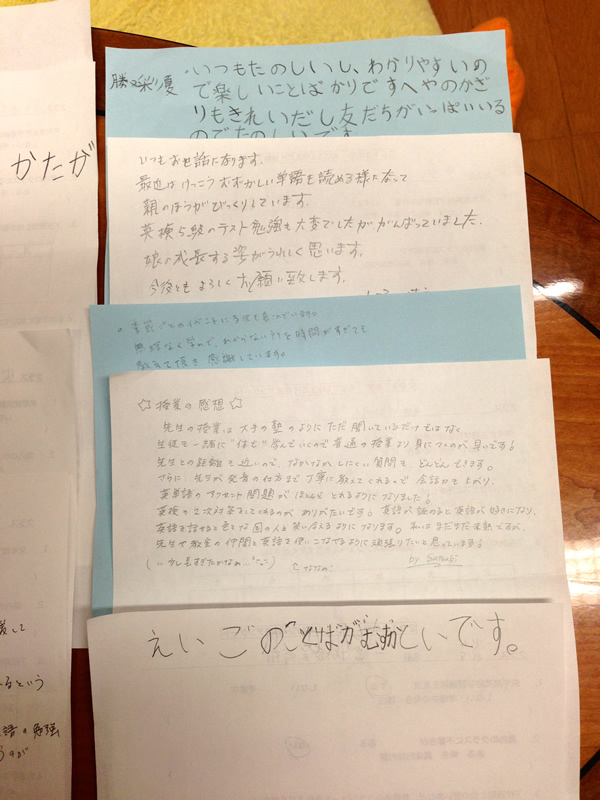 勝又彩夏
・いつもたのしいし、わかりやすいの
で楽しいことばかりですへやのかざ
りもきれいだし友だちがいっぱいいる
のでたのしいです
かたが
いつもお世話になります。
最近はけっこうむずかしい単語を読める様になって
親のほうがびっくりしています。
英検5級のテスト勉強も大変でしたががんばっていました。
娘の成長する姿がうれしく思います。
今後ともよろしくお願い致します。
季節ごとのイベントに子供も喜んでいます。
無理なく学べ、わからないところを時間がすぎても
教えて頂き感謝しています。
☆授業の感想☆
先生の授業は大手の塾のようにただ聞いているだけではなく
生徒も一緒に"体も"学んでいくので普通の授業より身につくのが早いです!
先生との距離も近いので、なかなかしにくい質問もどんどんできます。
さらに、先生が発音の仕方まで丁寧に教えてくれるので会話力も上がり、
英単語のアクセント問題がほとんどとれるようになりました!
英検の2次対策もしてくれるのがありがたいです。英語が話せると英語が好きになり、
英語を話せると色々な国の人と笑い合えるようになります。私はまだまだ未熟ですが、
先生や教室の仲間と英語を使いこなせるように頑張りたいと思っています!
by Satsuki
えいごのことばがむずかしいです。
るという
語の勉強